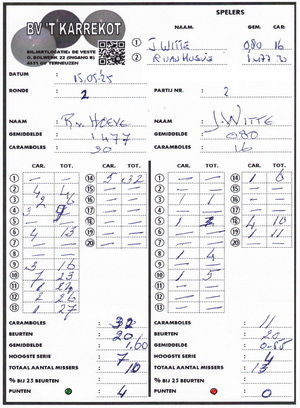 BV 'T KARREKOT
BILJARTLOCATIE: DE VESTE
D. BOLWERK 22 (INGANG B)
4531 GV TERNEUZEN
SPELERS
NAAM: GEM. CAR.
1 J. WITTE 080 16
2 R VAN 1.477 30
DATUM : 15.05.25
RONDE : 2 PARTIJ NR. : 2
NAAM : R.v. HOEVE NAAM : J. WITTE
GEMIDDELDE : 1.477 GEMIDDELDE : 080
CARAMBOLES : 30 CARAMBOLES : 16
CAR. TOT. CAR. TOT. CAR. TOT. CAR. TOT.
1 — — 14 5 32 1 — — 14 1 6
2 4 4 15 — — 2 — — 15 — —
3 — 16 — — 3 — — 16 — —
4 17 — — 4 — — 17 — —
5 — — 18 — — 5 1 18 4 10
6 4 13 19 — — 6 1 19 1 11
7 — — 20 — — 7 — — 20 — —
8 — — 8 — —
9 3 16 9 1 4
10 7 23 10 1 5
11 1 24 11 — —
12 2 26 12 — —
13 1 27 13 — —
CARAMBOLES : 32 CARAMBOLES : 11
BEURTEN : 20 BEURTEN : 20
GEMIDDELDE : 1.60 GEMIDDELDE : 0.55
HOOGSTE SERIE : 7 HOOGSTE SERIE : 4
TOTAAL AANTAL MISSERS : 10 TOTAAL AANTAL MISSERS : 13
% BIJ 25 BEURTEN : % BIJ 25 BEURTEN :
PUNTEN : 4 PUNTEN : 0